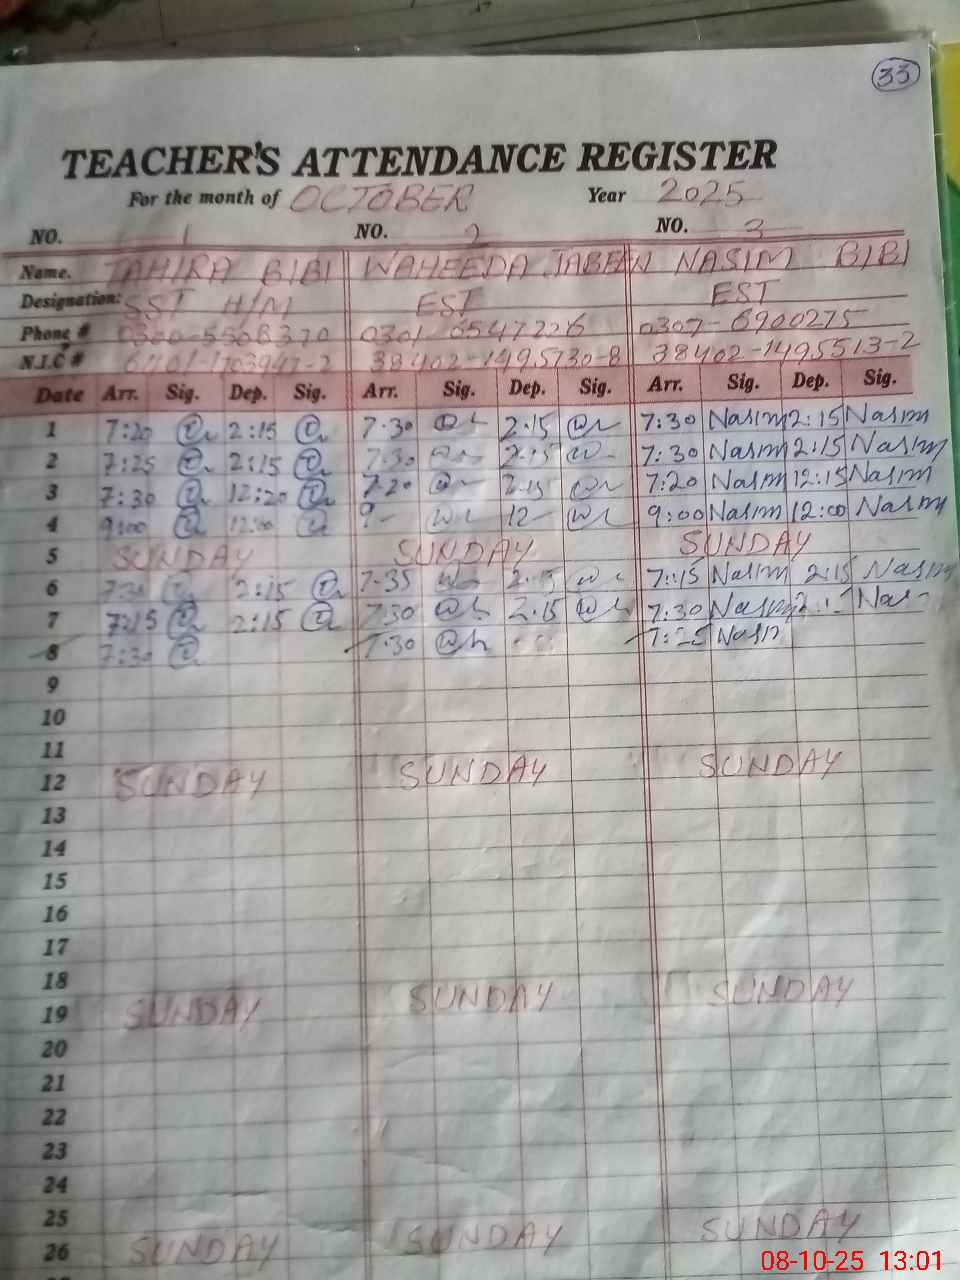 33
TEACHER'S ATTENDANCE REGISTER
For the month of OCTOBER Year 2025
NO. 1 NO. 2 NO. 3
Name. TAHIRA BIBI WAHEEDA JABEEN NASIM BIBI
Designation: SST H/M EST EST
Phone # 0301-6547226 0307-6900275
N.I.C # 38402-1495730-8 38402-1495513-2
Date Arr. Sig. Dep. Sig. Arr. Sig. Dep. Sig. Arr. Sig. Dep. Sig.
1 7:20 2:15 7.30 2.15 7:30 Nasim 2:15 Nasim
2 7:25 2:15 7.30 2.15 7:30 Nasim 2:15 Nasim
3 7:30 12:20 7.20 7:20 Nasim 12:15 Nasim
4 9:00 12:00 9- 12- 9:00 Nasim 12:00 Nasim
5 SUNDAY SUNDAY SUNDAY
6 7:30 2:15 7.35 2.15 7:15 Nasim 2:15 Nasim
7 7:15 2:15 7.30 2.15 7:30 Nasim
8 7:30 7.30 7:25 Nasim
9
10
11
12 SUNDAY SUNDAY SUNDAY
13
14
15
16
17
18
19 SUNDAY SUNDAY SUNDAY
20
21
22
23
24
25
26 SUNDAY SUNDAY SUNDAY
08-10-25 13:01